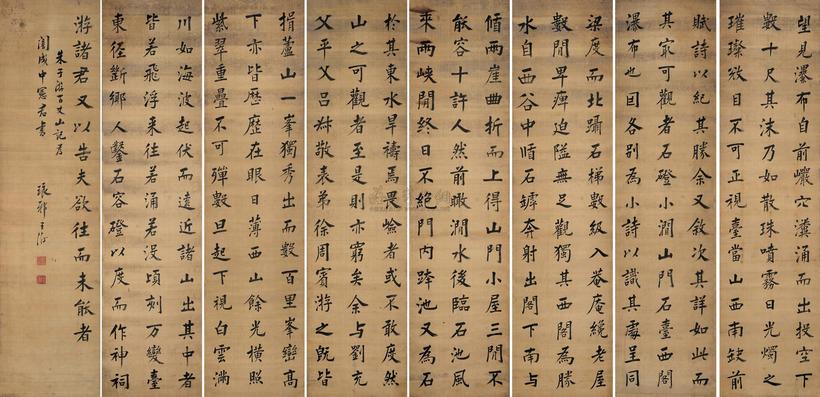 望見瀑布自前巖穴瀵涌而出投空下
數十尺其沫乃如散珠噴霧日光燭之
璀璨敚目不可正視臺當山西南缺前
賦詩以紀其勝余又敘次其詳如此而
其最可觀者石磴小澗山門石臺西閣
瀑布也因各別為小詩以識其處呈同
梁度而北躡石梯數級入菴庵纔老屋
數間卑庳迫隘無足觀獨其西閣為勝
水自西谷中循石罅奔射出閣下南與
循兩崖曲折而上得山門小屋三間不
能容十許人然前瞰澗水後臨石池風
來兩峽間終日不絕門內跨池又為石
於其東水旱禱焉畏險者或不敢度然
山之可觀者至是則亦窮矣余與劉充
父平父呂叔敬表弟徐周賓游之既皆
揖蘆山一峯獨秀出而數百里峯巒高
下亦皆歷歷在眼日薄西山餘光橫照
紫翠重疊不可殫數旦起下視白雲滿
川如海波起伏而遠近諸山出其中者
皆若飛浮來往若涌若沒頃刻萬變臺
東徑斷鄉人鑿石容磴以度而作神祠
游諸君又以告夫欲往而未能者
朱子游百丈山記為
成中憲君書
琅邪王澍